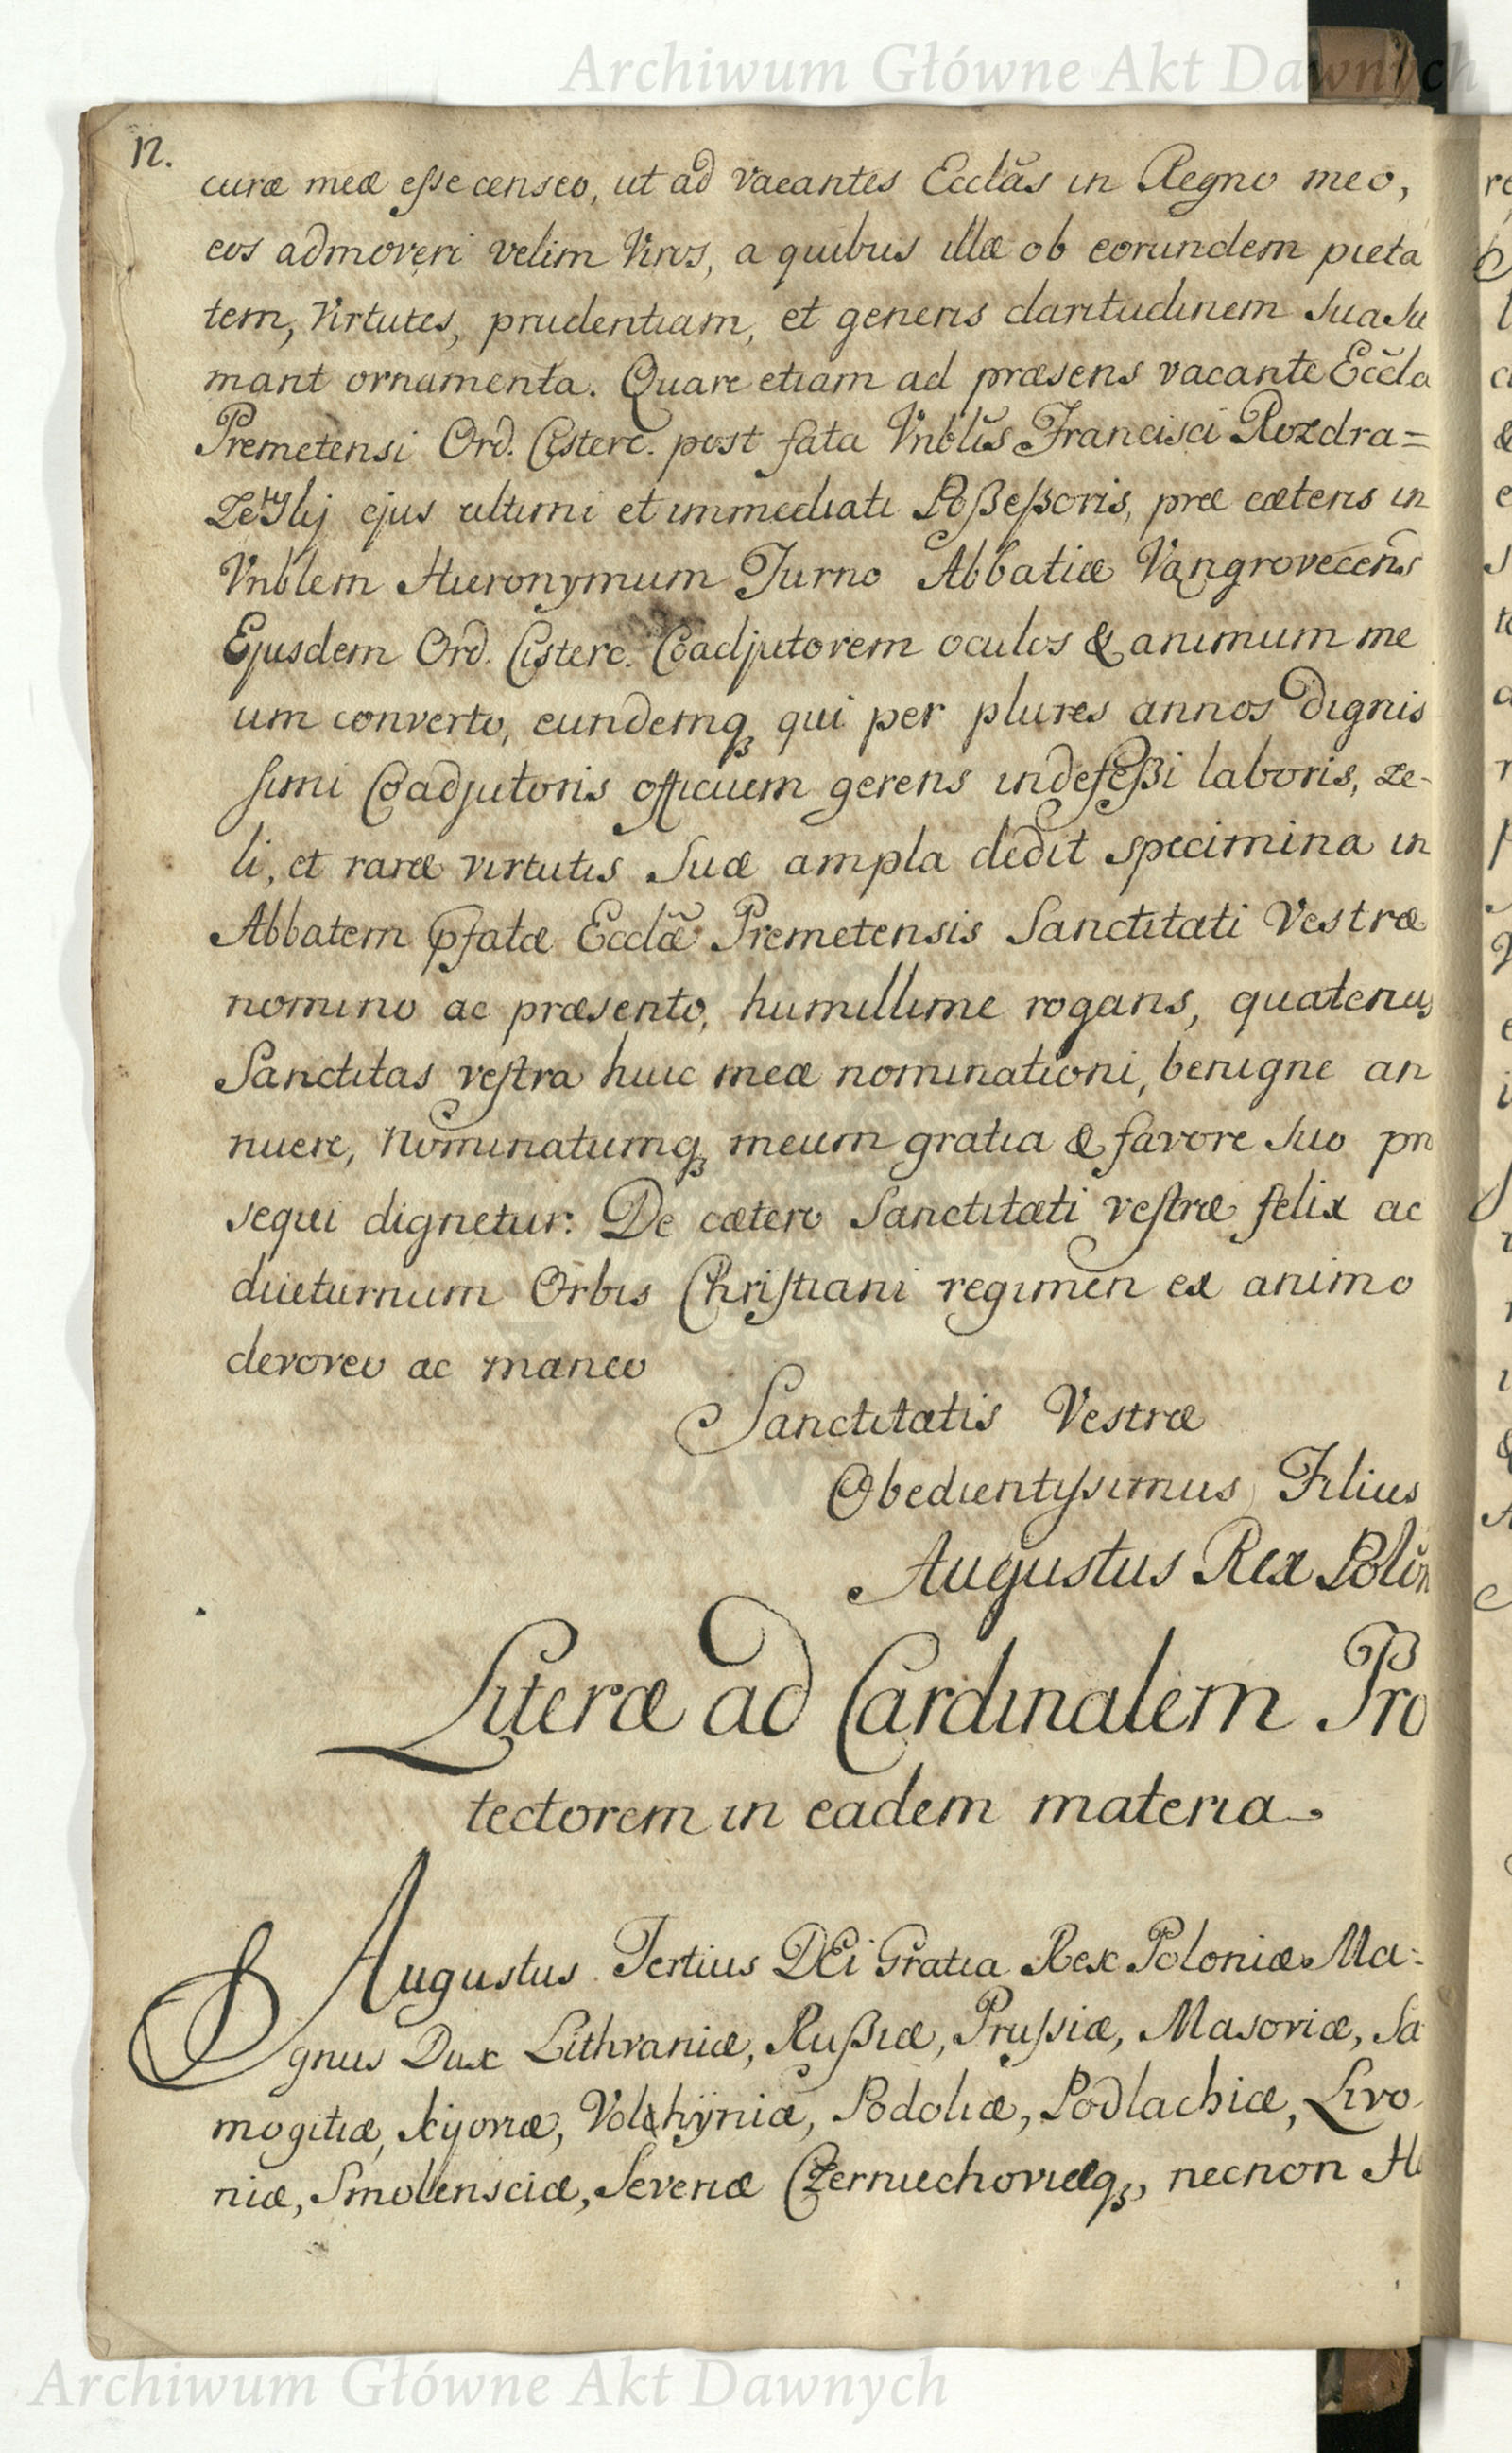 Archiwum Główne Akt Dawnych
12.
curæ meæ esse censeo, ut ad vacantes Ecclãs in Regno meo,
eos admoveri velim Viros, a quibus illæ ob eorundem pieta
tem, Virtutes, prudentiam, et generis claritudinem sua su
mant ornamenta. Quare etiam ad præsens vacante Eccla
Premetensi Ord. Cisterc. post fata Vnblis Francisci Rozdra=
zewskij ejus ultimi et immediati Poßeßoris, præ cæteris in
Vnblem Hieronymum Turno Abbatiæ Vangrovecens
Ejusdem Ord. Cisterc. Coadjutorem oculos & animum me
um converto, eundemq₃ qui per plures annos dignis
simi Coadjutoris officium gerens indefeßi laboris, ze-
li, et raræ virtutis suæ ampla dedit specimina in
Abbatem pfatæ Ecclæ Premetensis Sanctitati Vestræ
nomino ac præsento, humillime rogans, quatenus
Sanctitas vestra huic meæ nominationi, benigne an
nuere, Nominatumq₃ meum gratia & favore suo pro
sequi dignetur: De cætero Sanctitati vestræ felix ac
diuturnum Orbis Christiani regimen ex animo
devoveo ac maneo
Sanctitatis Vestræ
Obedientissimus Filius
Augustus Rex Polon
Literæ ad Cardinalem Pro
tectorem in eadem materia
Augustus Tertius DEi Gratia Rex Poloniæ Ma=
gnus Dux Lithvaniæ, Rußiæ, Prussiæ, Masoviæ, Sa
mogitiæ, Kijoviæ, Volhyniæ, Podoliæ, Podlachiæ, Livo
niæ, Smolensciæ, Severiæ Czerniechoviæq₃, necnon
Archiwum Główne Akt Dawnych